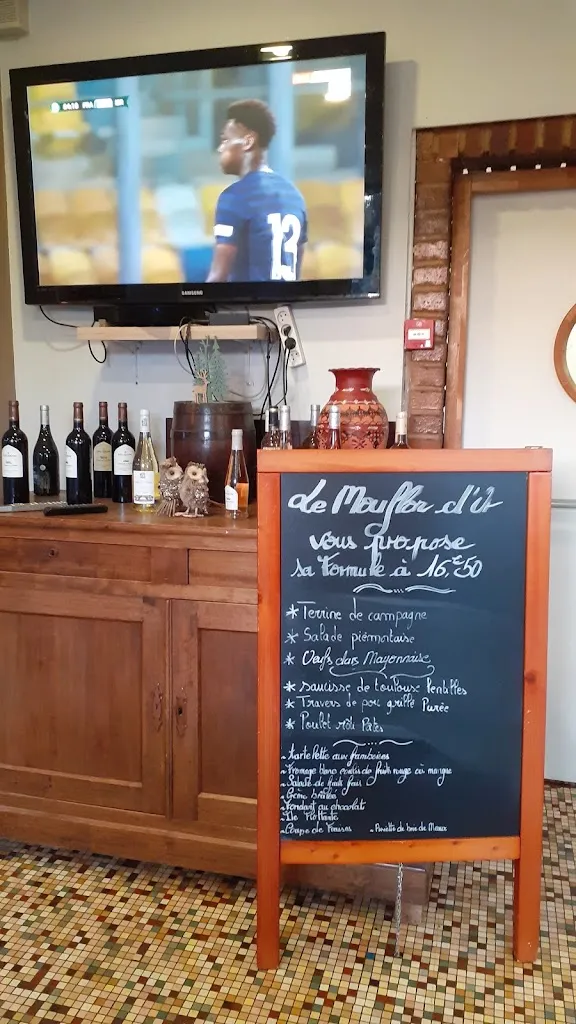 FRA
13
SAMSUNG
Le Mouflon d'or
vous propose
sa Formule à 16,€50
* Terrine de campagne
* Salade piémontaise
* Oeufs durs Mayonnaise
* saucisse de toulouse lentilles
* Travers de porc grillé Purée
* Poulet rôti Pâtes
- Tartelette aux framboises
- Fromage blanc coulis de fruits rouge ou mangue
- Salade de fruits frais
- Crème brûlée
- Fondant au chocolat
- Ile Flottante
- Coupe de Fraises - Assiette de brie de Meaux